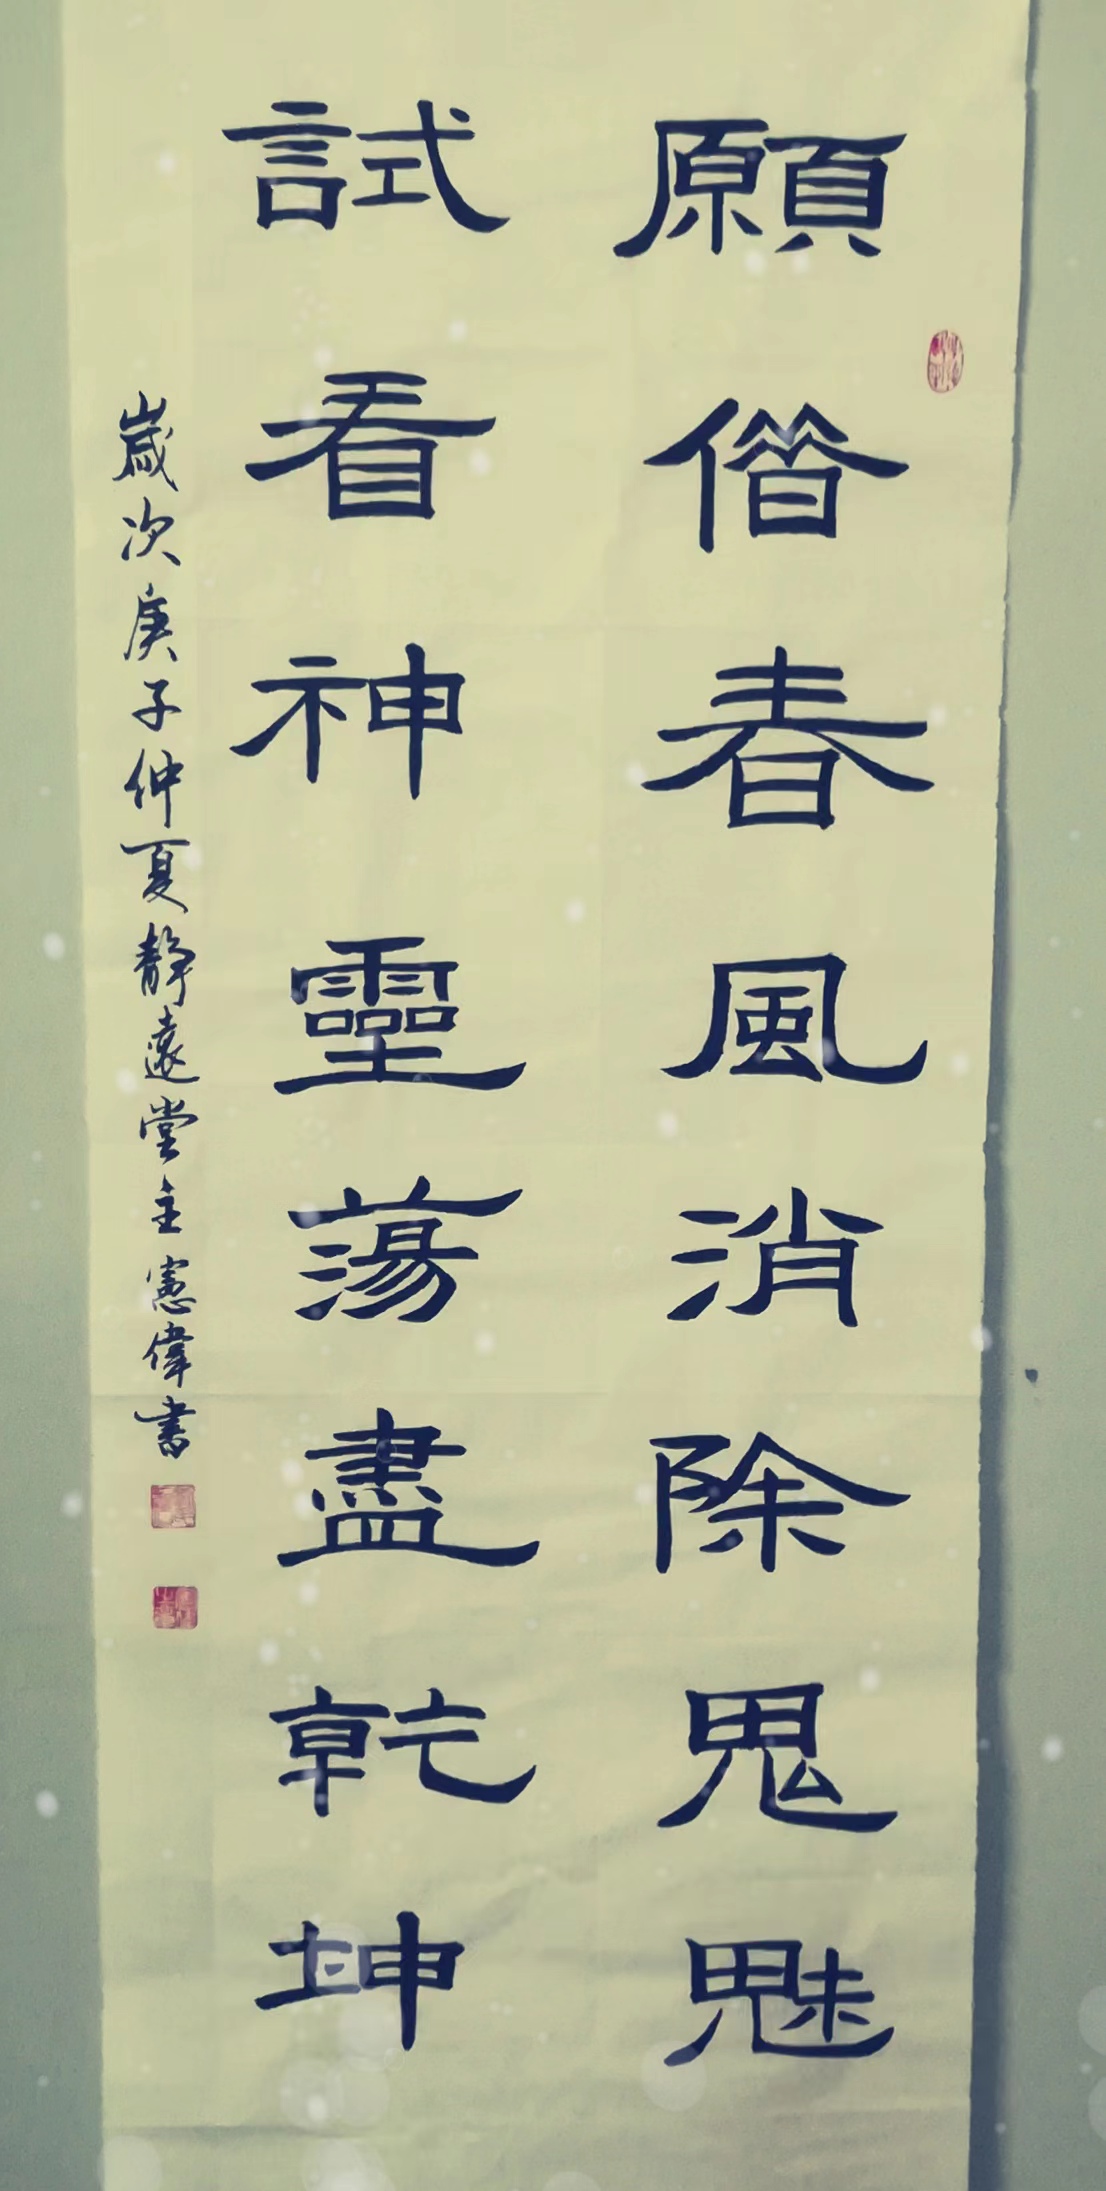 願僭春風消除鬼魅
試看神靈蕩盡乾坤
歲次庚子仲夏靜遠堂主憲偉書